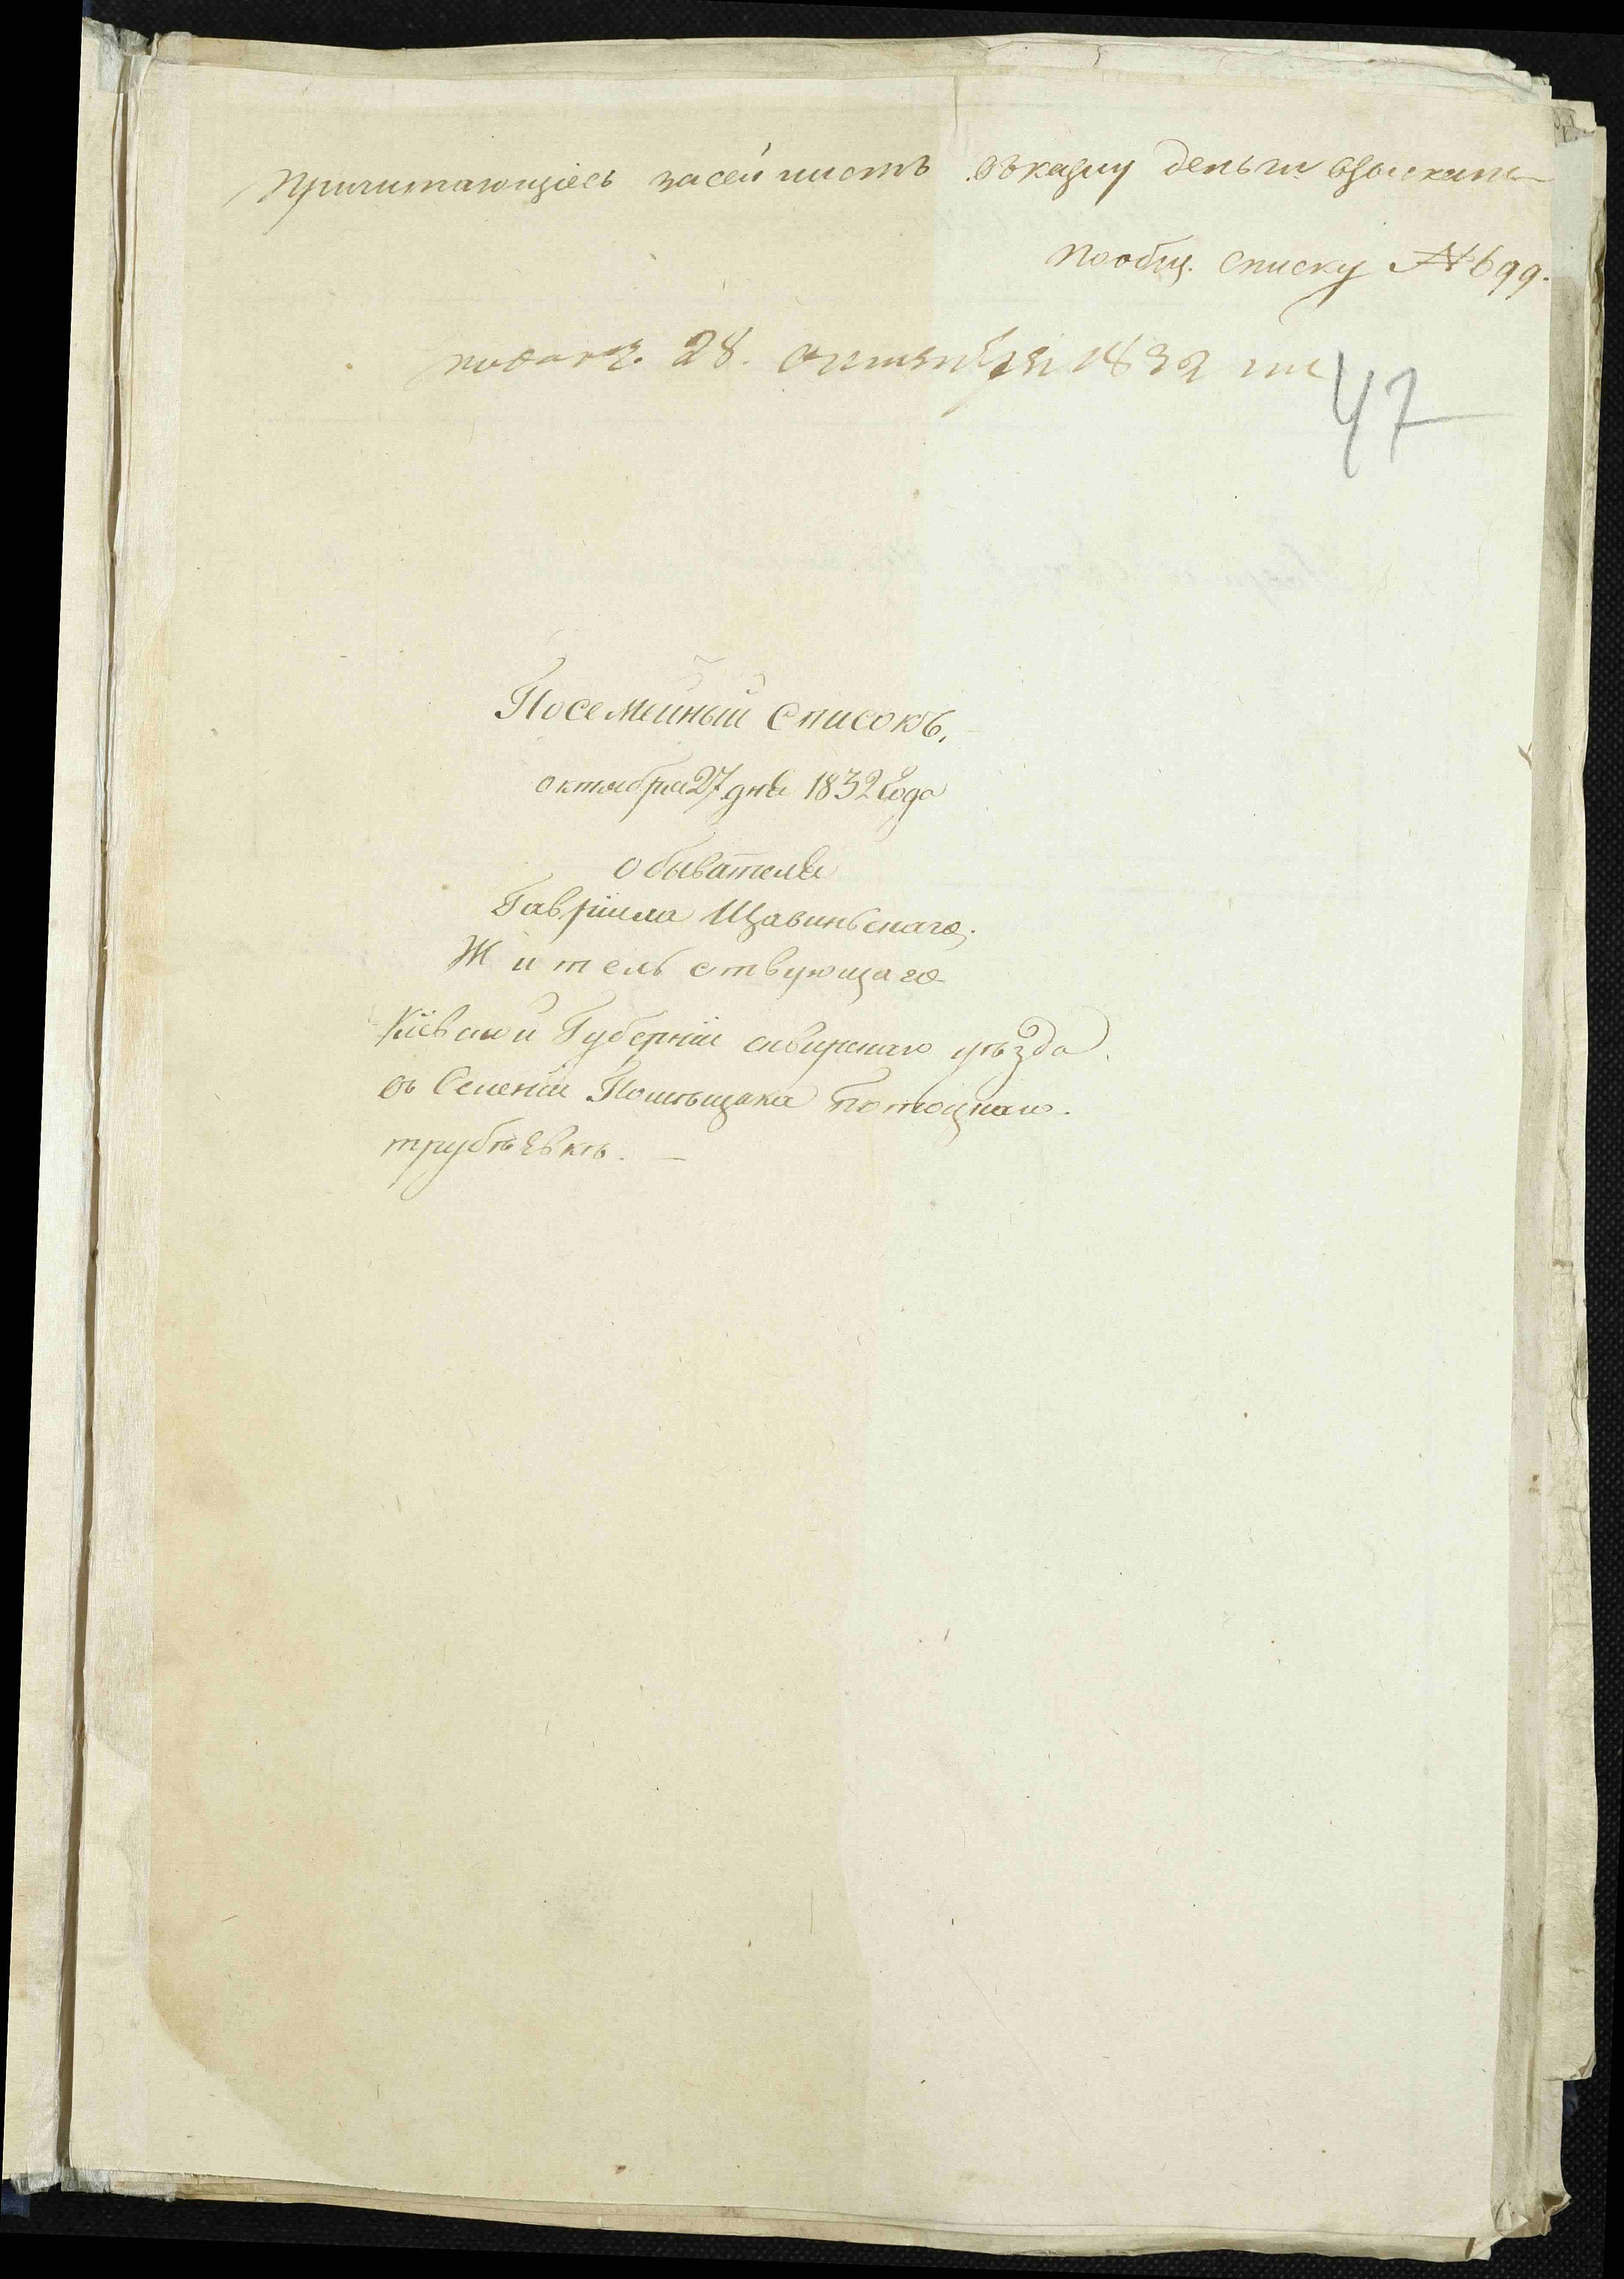 Причитающіесь засей листъ въ казну деньги взыскать
пообщ. списку № 699.
подан. 28. октября 1832 го
47
Посемейный Списокъ,
октября 27 дня 1832 года
обывателя
Гавріила Щавиньскаго,
Жительствующаго
Кіевской Губерніи сквирскаго уѣзда
въ Селеніи Помѣщика Потоцкаго.
трубѣевкѣ. —